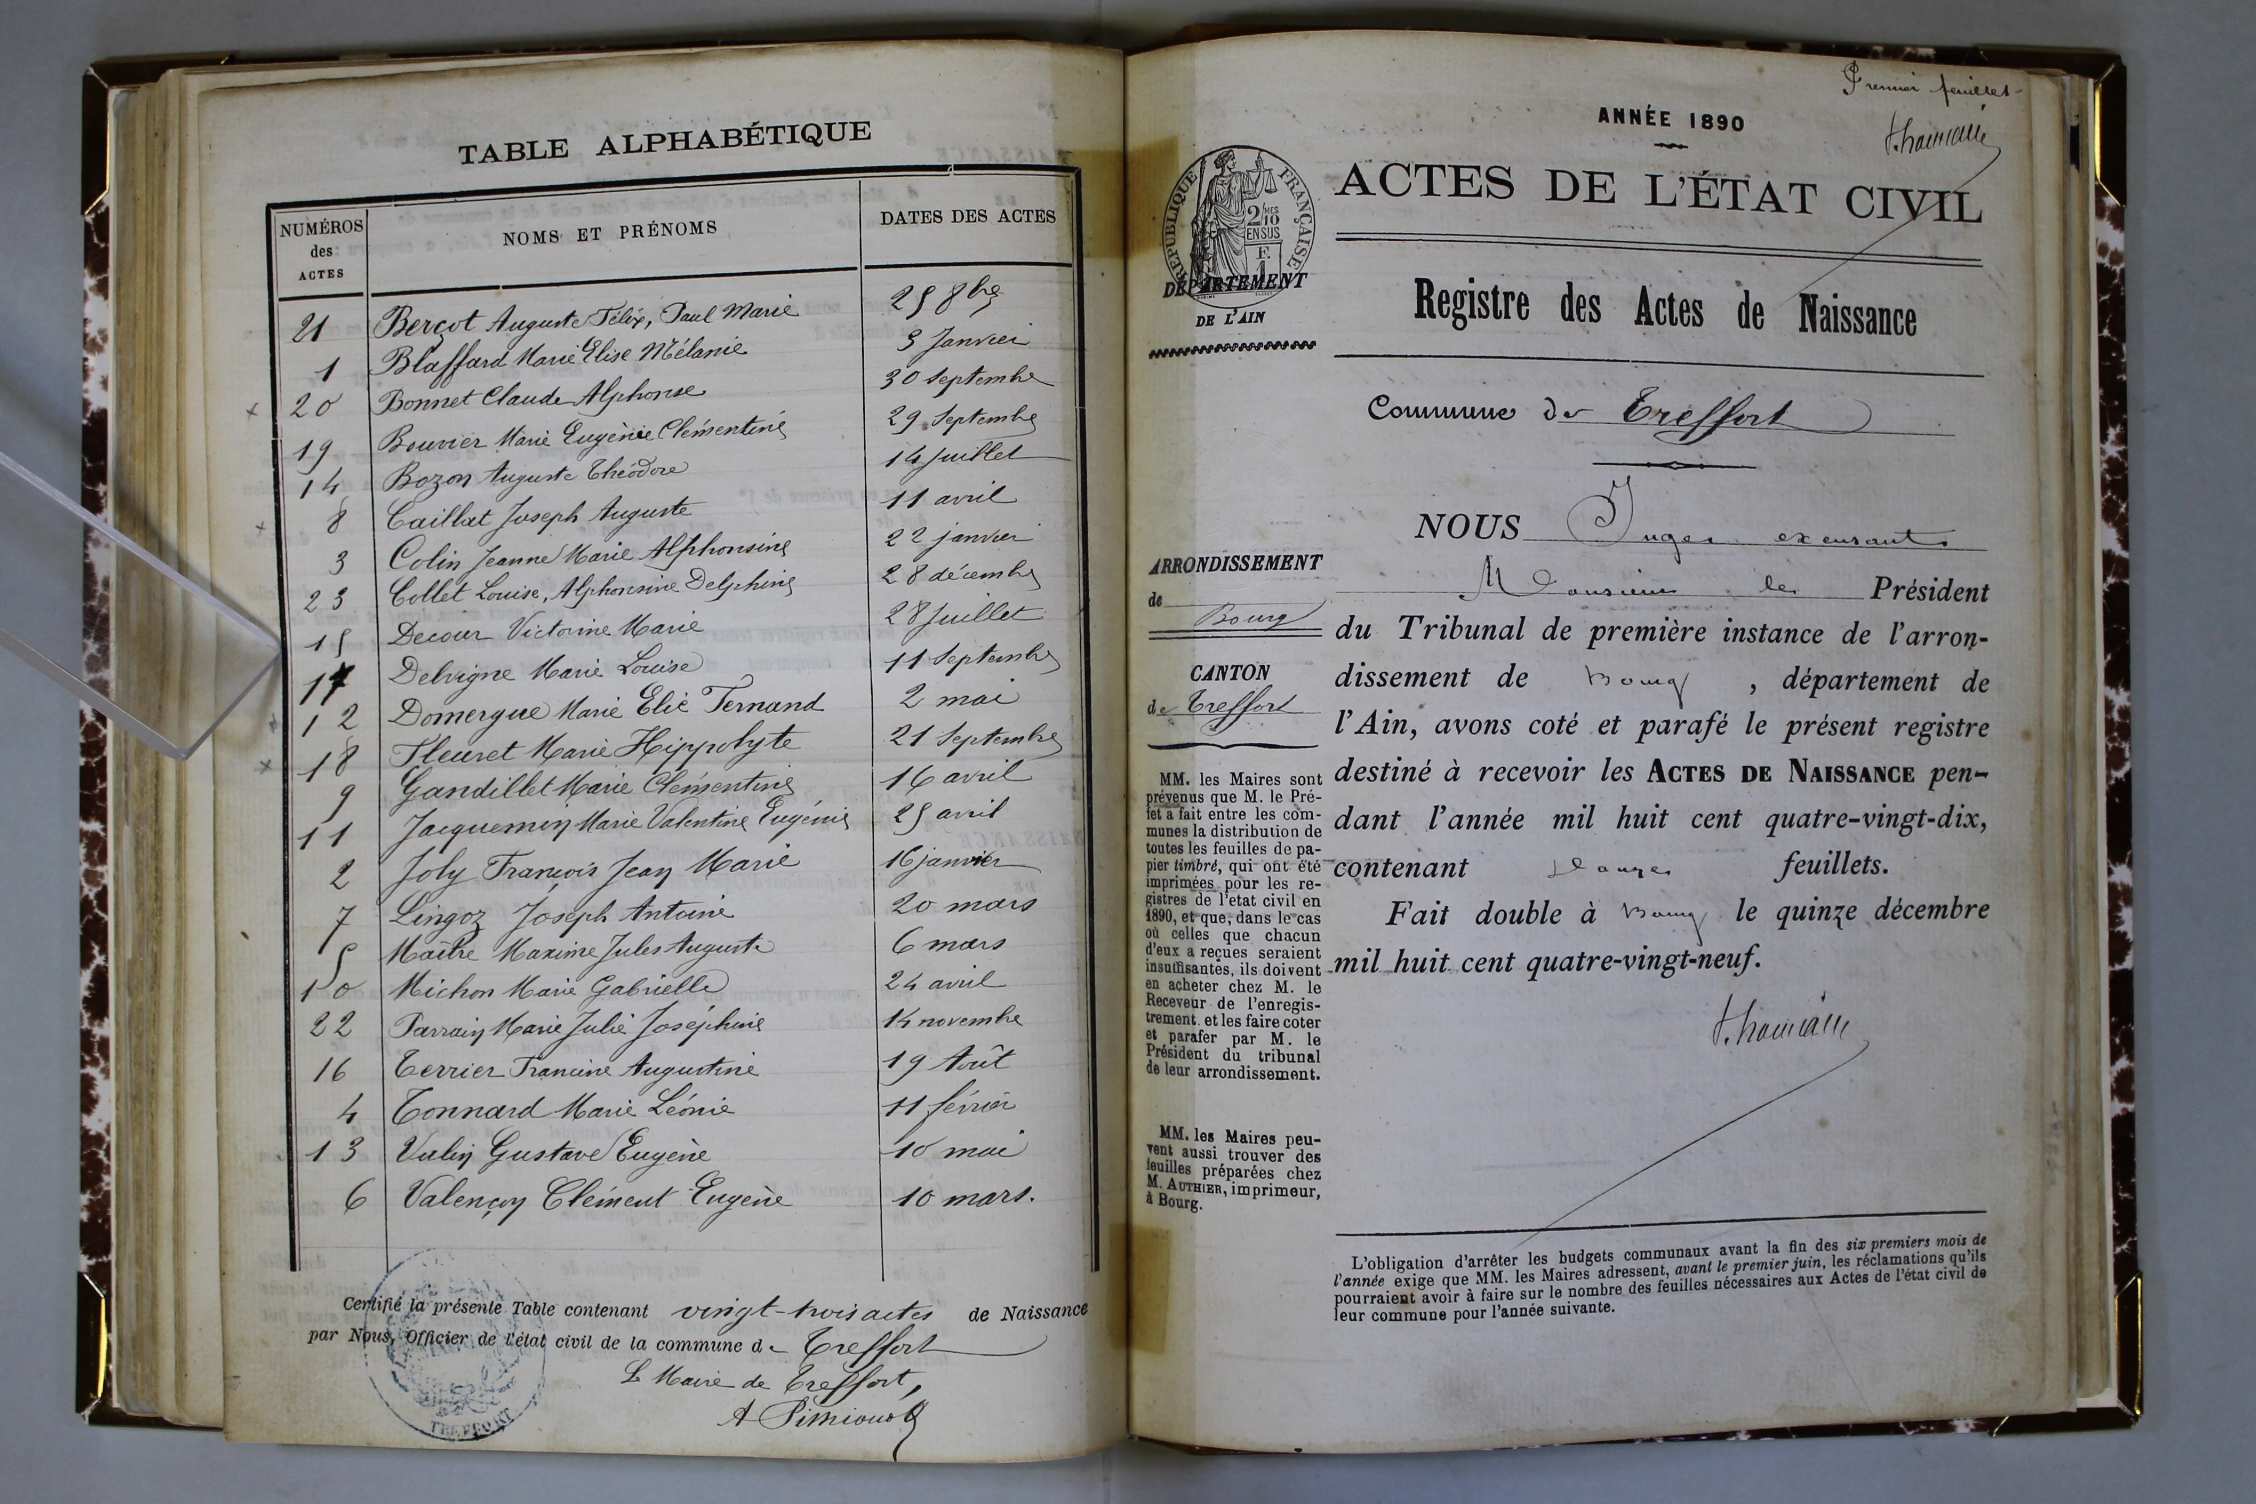 TABLE ALPHABÉTIQUE
NUMÉROS des ACTES
NOMS ET PRÉNOMS
DATES DES ACTES
21 Berçot Auguste Félix, Paul Marie 25 8bre
1 Blaffard Marie Elise Mélanie 3 Janvier
20 Bonnet Claude Alphonse 30 Septembre
19 Bouvier Marie Eugènie Clémentine 29 Septembre
14 Bozon Auguste Théodore 14 Juillet
8 Caillat Joseph Auguste 11 avril
3 Colin Jeanne Marie Alphonsine 22 janvier
23 Collet Louise, Alphonsine Delphine 28 décembre
15 Decour Victorine Marie 28 Juillet
17 Delvigne Marie Louise 11 Septembre
12 Domergue Marie Elie Fernand 2 mai
18 Fleuret Marie Hippolyte 21 Septembre
9 Gandillet Marie Clémentine 16 avril
11 Jacquemin Marie Valentine Eugénie 25 avril
2 Joly François Jean Marie 16 janvier
7 Lingoz Joseph Antoine 20 mars
5 Maître Maxime Jules Auguste 6 mars
10 Michon Marie Gabrielle 24 avril
22 Parrain Marie Julie Joséphine 14 novembre
16 Terrier Francine Augustine 19 Août
4 Tonnard Marie Léonie 11 février
13 Valin Gustave Eugène 10 mai
6 Valençon Clément Eugène 10 mars.
Certifié la présente Table contenant vingt-trois actes de Naissance
par Nous, Officier de l'état civil de la commune de Treffort
Le Maire de Treffort,
TREFFORT
Premier feuillet
ANNÉE 1890
ACTES DE L'ÉTAT CIVIL
RÉPUBLIQUE FRANÇAISE
2/10 MES
EN SUS
F.
1
DÉPARTEMENT
DE L'AIN
Registre des Actes de Naissance
Commune de Treffort
NOUS Juge excusant
Monsieur le Président
du Tribunal de première instance de l'arron-
dissement de Bourg, département de
l'Ain, avons coté et parafé le présent registre
destiné à recevoir les ACTES DE NAISSANCE pen-
dant l'année mil huit cent quatre-vingt-dix,
contenant douze feuillets.
Fait double à Bourg le quinze décembre
mil huit cent quatre-vingt-neuf.
ARRONDISSEMENT
de Bourg
CANTON
de Treffort
MM. les Maires sont
prévenus que M. le Pré-
fet a fait entre les com-
munes la distribution de
toutes les feuilles de pa-
pier timbré, qui ont été
imprimées pour les re-
gistres de l'etat civil en
1890, et que, dans le cas
où celles que chacun
d'eux a reçues seraient
insuffisantes, ils doivent
en acheter chez M. le
Receveur de l'enregis-
trement et les faire coter
et parafer par M. le
Président du tribunal
de leur arrondissement.
MM. les Maires peu-
vent aussi trouver des
feuilles préparées chez
M. AUTHIER, imprimeur,
à Bourg.
L'obligation d'arrêter les budgets communaux avant la fin des six premiers mois de
l'année exige que MM. les Maires adressent, avant le premier juin, les réclamations qu'ils
pourraient avoir à faire sur le nombre des feuilles nécessaires aux Actes de l'état civil de
leur commune pour l'année suivante.